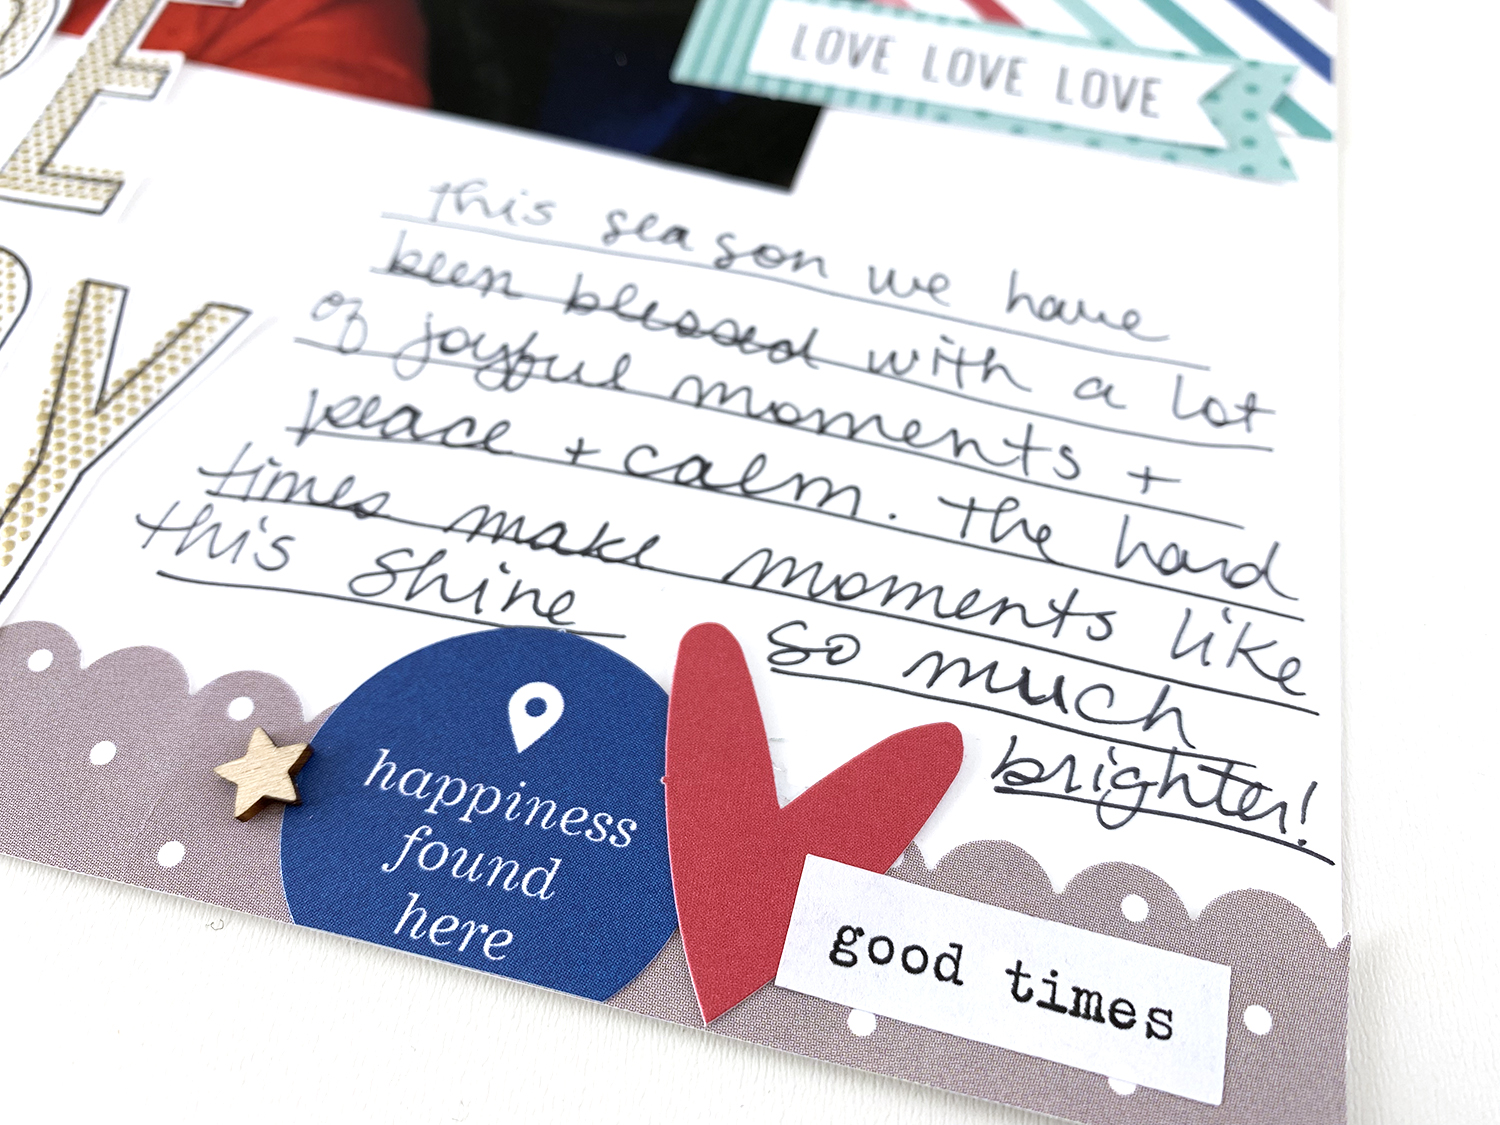 LOVE LOVE LOVE
E
Y
this season we have
been blessed with a lot
of joyful moments +
peace + calm. The hard
times make moments like
this shine so much
brighter!
happiness
found
here
good times